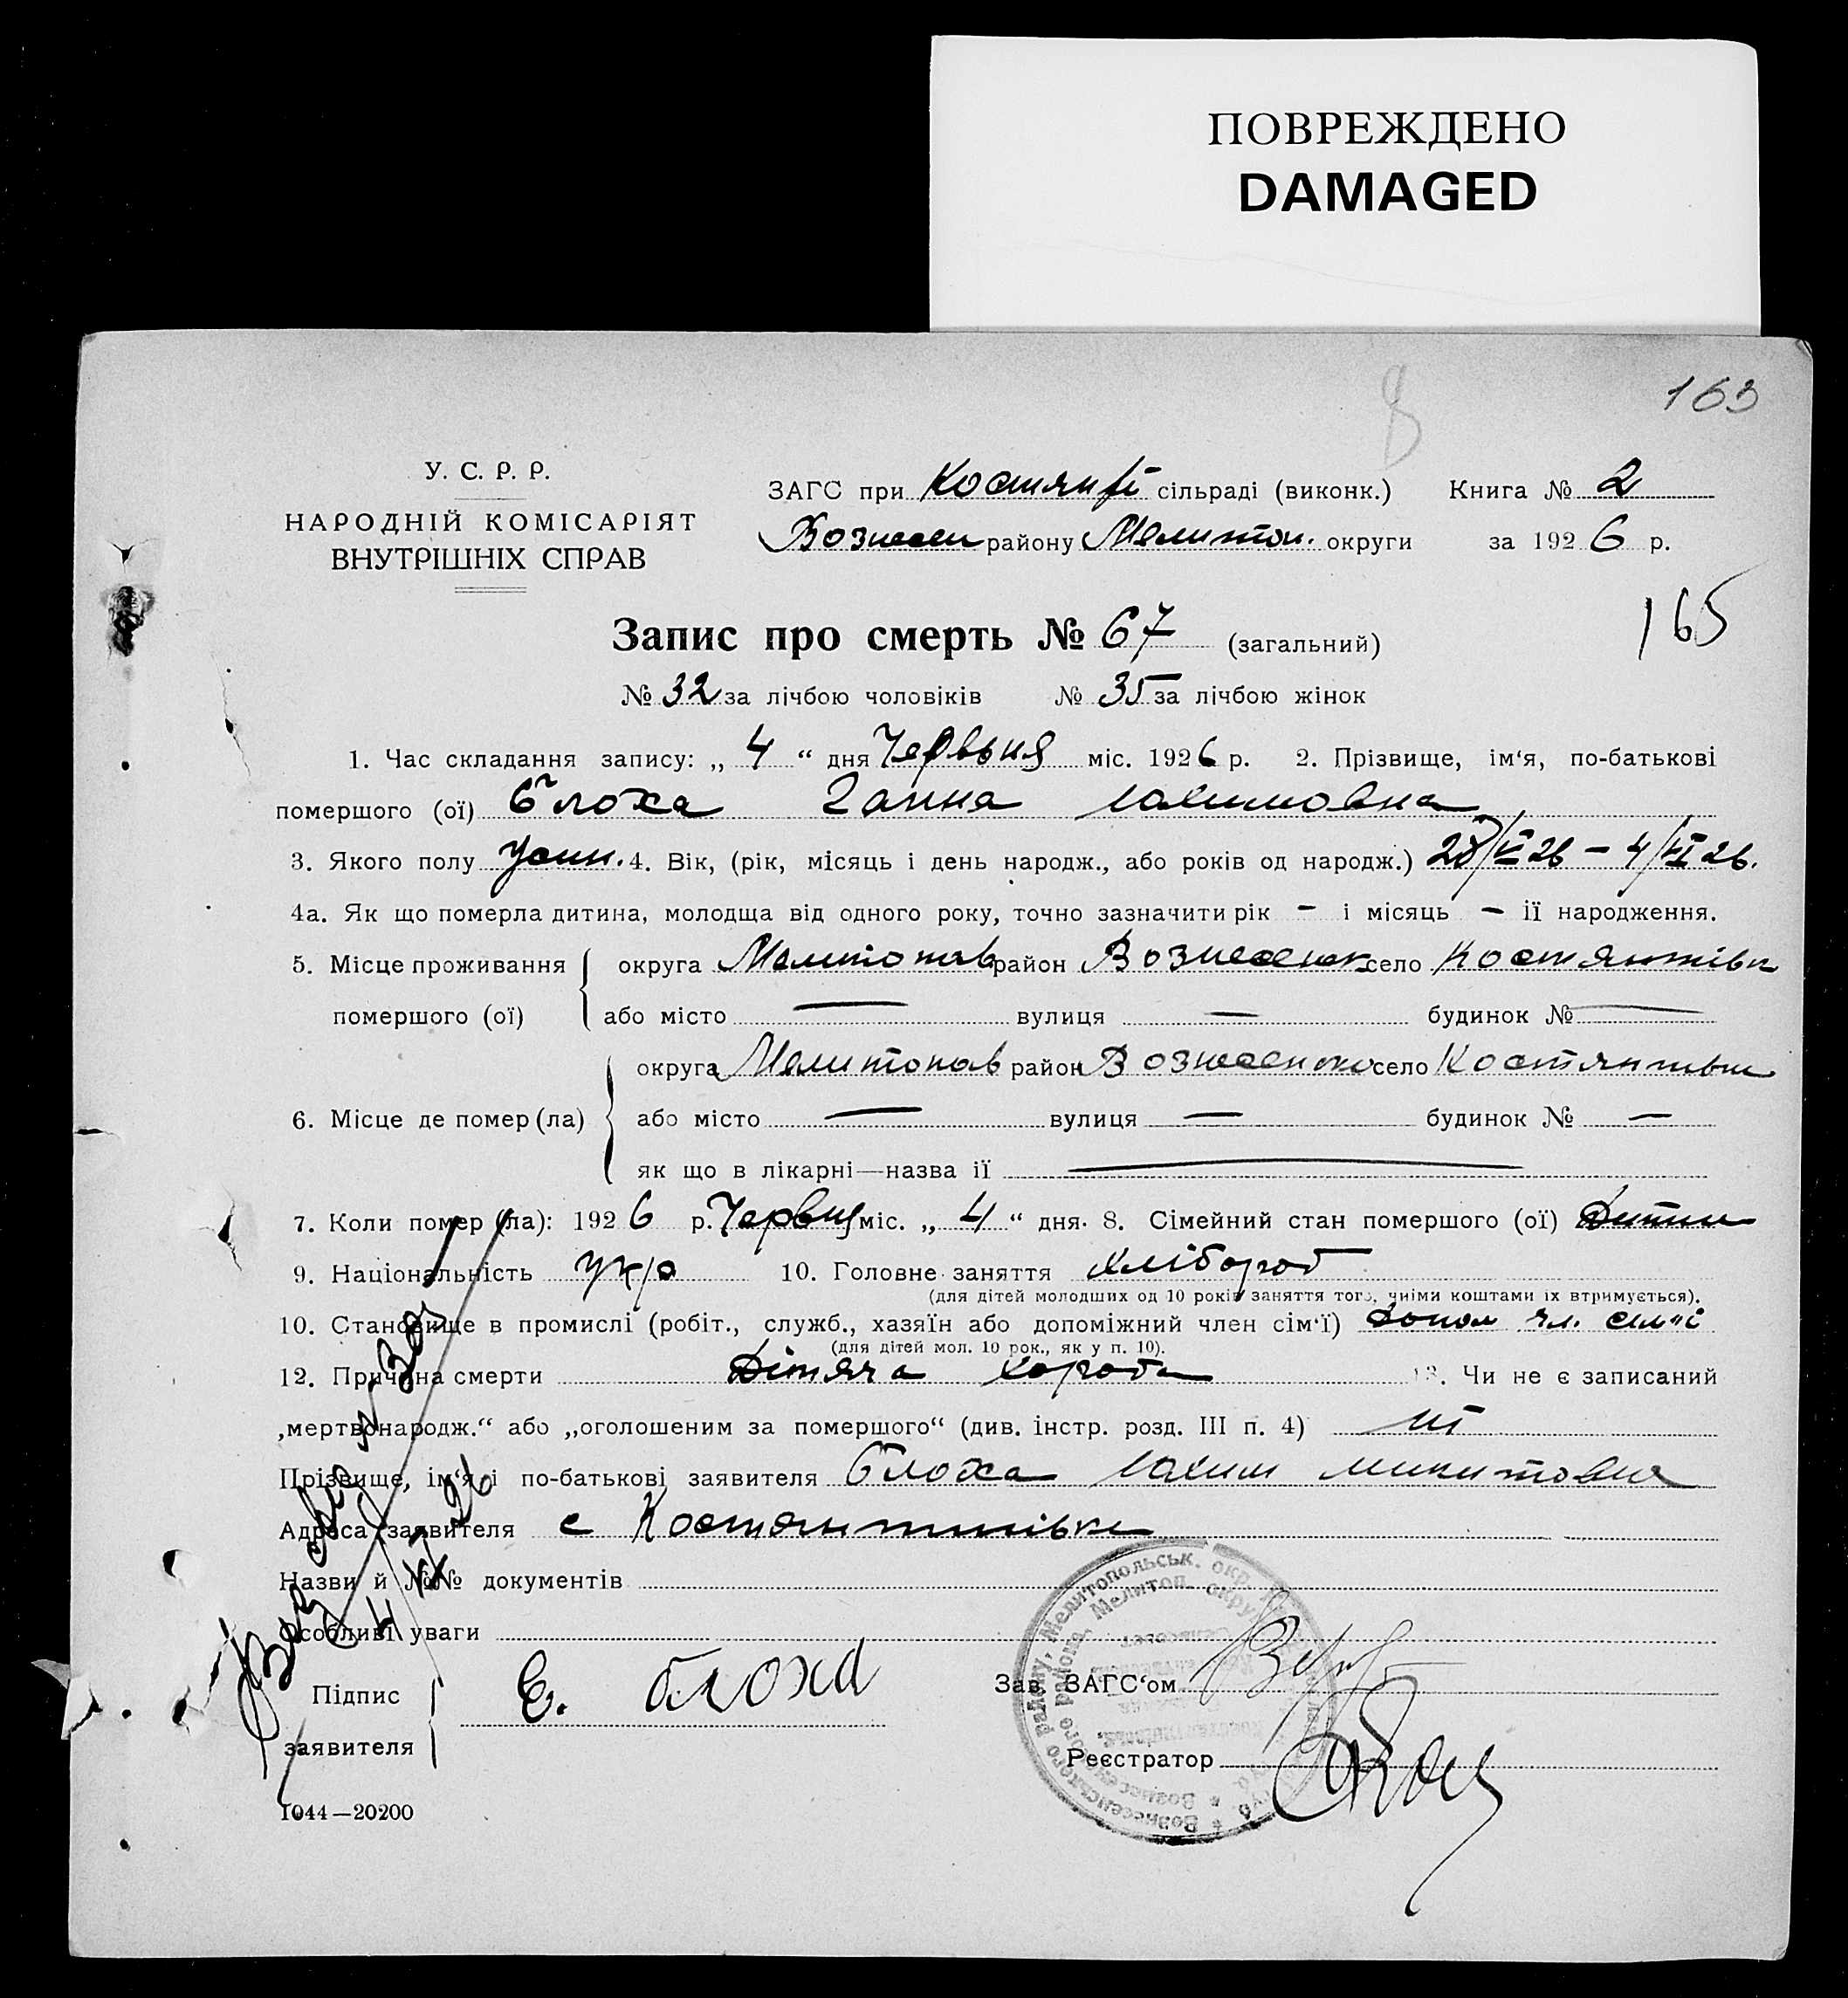 ПОВРЕЖДЕНО
DAMAGED
163
У. С. Р. Р.
НАРОДНІЙ КОМІСАРІЯТ
ВНУТРІШНІХ СПРАВ
ЗАГС при сільраді (виконк.) Книга № 2
Вознесен району Мелитоп. округи за 1926 р.
165
Запис про смерть № 67 (загальний)
№ 32 за лічбою чоловіків № 35 за лічбою жінок
1. Час складання запису: „ 4 “ дня Червьня міс. 1926 р. 2. Прізвище, ім‘я, по-батькові
помершого (ої) Блоха Ганна
3. Якого полу 4. Вік, (рік, місяць і день народж., або років од народж.) 28/V 26 – 4/VI 26.
4а. Як що померла дитина, молодща від одного року, точно зазначити рік – і місяць – її народження.
5. Місце проживання округа Мелитопов район Вознесенск село Костянтівк
помершого (ої) або місто — вулиця — будинок № —
округа Мелитопов район Вознесенско село
6. Місце де помер (ла) або місто — вулиця — будинок № —
як що в лікарні—назва її —
7. Коли помер (ла): 1926 р. Червня міс. „ 4 “ дня. 8. Сімейний стан помершого (ої) Дитин
9. Національність укр 10. Головне заняття хлібороб
(для дітей молодших од 10 років заняття того, чиїми коштами їх втримується).
10. Становище в промислі (робіт., служб., хазяїн або допоміжний член сім‘ї) допом чл. сім'ї
(для дітей мол. 10 рок., як у п. 10).
12. Причина смерти Дітяча хороба 13. Чи не є записаний
„мертвонародж.“ або „оголошеним за помершого“ (див. інстр. розд. III п. 4) ні
Прізвище, ім‘я, і по-батькові заявителя Блоха
Адреса заявителя с Костянтинівка
Назви й №№ документів
Особливі уваги
Підпис
заявителя
Е. блоха
Зав. ЗАГС‘ом
Реєстратор
1044—20200